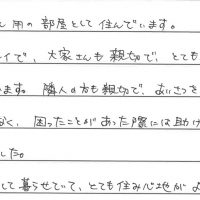 用の部屋として住んでいます。
イで、大家さんも親切で、とても
ます。隣人の方も親切で、あいさつを
なく、困ったことがあった際には助け
した。
して暮らせていて、とても住み心地が